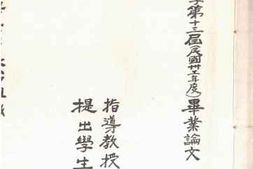 學第十三屆(民國卅三年度)畢業論文
指導教授
提出學生